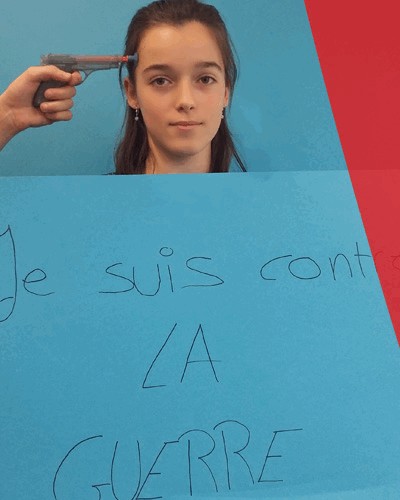 Je suis contre
LA
GUERRE